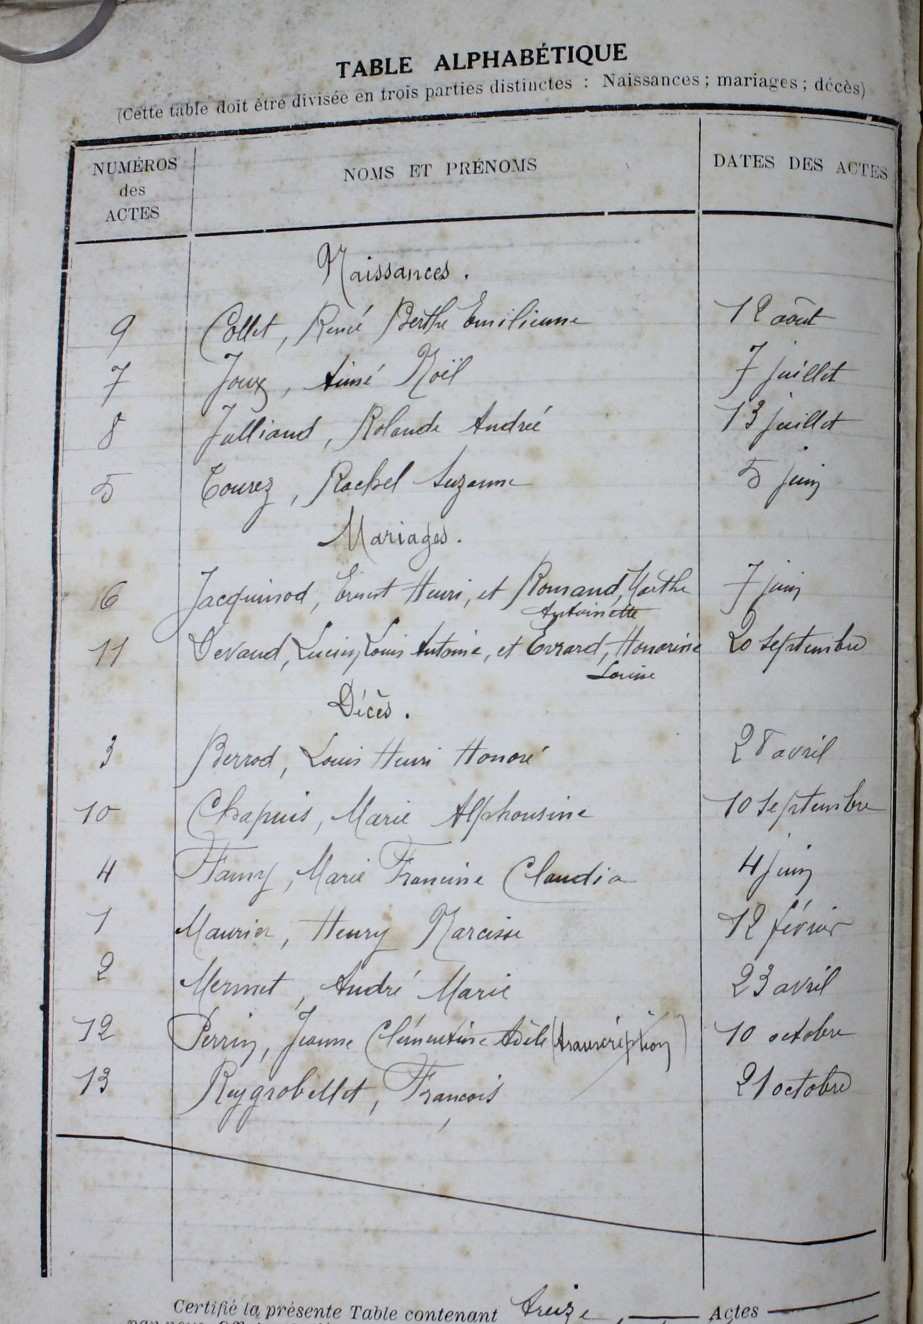 TABLE ALPHABÉTIQUE
(Cette table doit être divisée en trois parties distinctes : Naissances ; mariages ; décès)
NUMÉROS des ACTES NOMS ET PRÉNOMS DATES DES ACTES
Naissances.
9 Collet, René Berthe Emilienne 12 août
7 Joux, Aimé Noël 7 juillet
8 Julliand, Rolande Andrée 13 juillet
5 Tourez, Rachel Suzanne 5 juin
Mariages.
6 Jacquinod, Ernest Henri, et Romand, Marthe 7 juin
Antoinette
11 Devaud, Lucien, Louis Antoine, et Evrard, Honorine 20 septembre
Louise
Décès.
3 Berrod, Louis Henri Honoré 28 avril
10 Chapuis, Marie Alphonsine 10 septembre
4 Famy, Marie Francine Claudia 4 juin
1 Maurier, Henry Narcisse 12 février
2 Mermet, André Marie 23 avril
12 Perrin, Jeanne Clémentine Adèle (transcription) 10 octobre
13 Reygrobellet, François 21 octobre
Certifié la présente Table contenant treize Actes